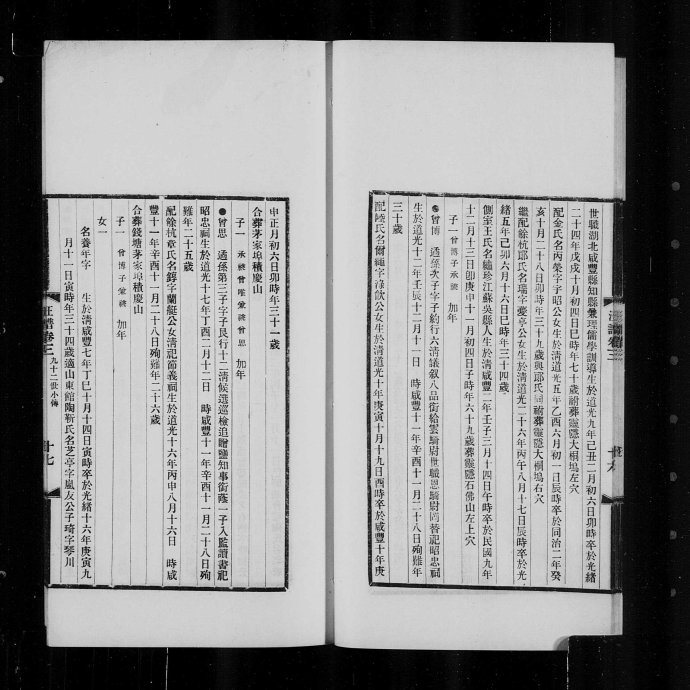 世職湖北咸豐縣知縣兼理儒學訓導生於道光九年己丑二月初六日卯時卒於光緒
二十四年戊戌十月初四日巳時年七十歲祔葬靈隱大桐塢左穴
配金氏名丙榮字字昭公女生於清道光五年乙酉六月初一日辰時卒於同治二年癸
亥十月二十八日卯時年三十九歲與邱氏同祔葬靈隱大桐塢右穴
繼配餘杭邱氏名瑞字憂亭公女生於清道光二十六年丙午八月十七日辰時卒於光
緒五年己卯六月十六日巳時年三十四歲
側室王氏名繡珍江蘇吳縣人生於清咸豐二年壬子三月十四日午時卒於民國九年
十二月十三日卯庚申十月初四日子時年六十九歲葬靈隱石佛山左上穴
子一 曾博子承綬 加年
曾博 遹孫次子字子約行六清議敘八品銜給雲騎尉世職恩騎尉罔替祀昭忠祠
生於道光十二年壬辰十二月十一日 時咸豐十一年辛酉十一月二十八日殉難年
三十歲
配陸氏名爾繩字淥飲公女生於清道光十年庚寅十月十九日酉時卒於咸豐十年庚
十六
申正月初六日卯時年三十一歲
合葬茅家埠積慶山
子一 承綬曾唯兼祧曾思 加年
曾思 遹孫第三子字子艮行十二清候選巡檢追贈鹽知事銜蔭一子入監讀書祀
昭忠祠生於道光十七年丁酉二月十二日 時咸豐十一年辛酉十一月二十八日殉
難年二十五歲
配餘杭章氏名錞字蘭艇公女清祀節義祠生於道光十六年丙申八月十六日 時咸
豐十一年辛酉十一月二十八日殉難年二十六歲
合葬錢塘茅家埠積慶山
子一 曾博子兼祧 加年
女一
名養年字 生於清咸豐七年丁巳十月十四日寅時卒於光緒十六年庚寅九
月十一日寅時年三十四歲適山東館陶靳氏名芝亭字嵐友公子琦字琴川
正譜卷三 九十二世小傳 十七